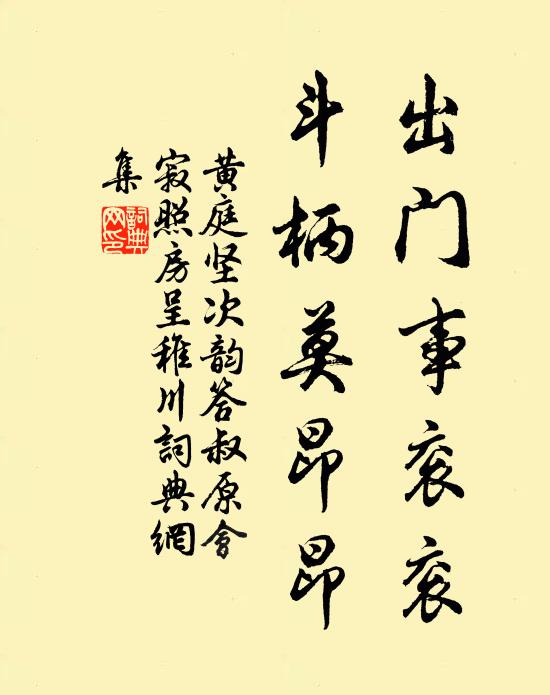 出门事衮衮
斗柄莫昂昂
黄庭坚次韵答叔原会
寂照房呈稚川詞典網
集
詞典網印